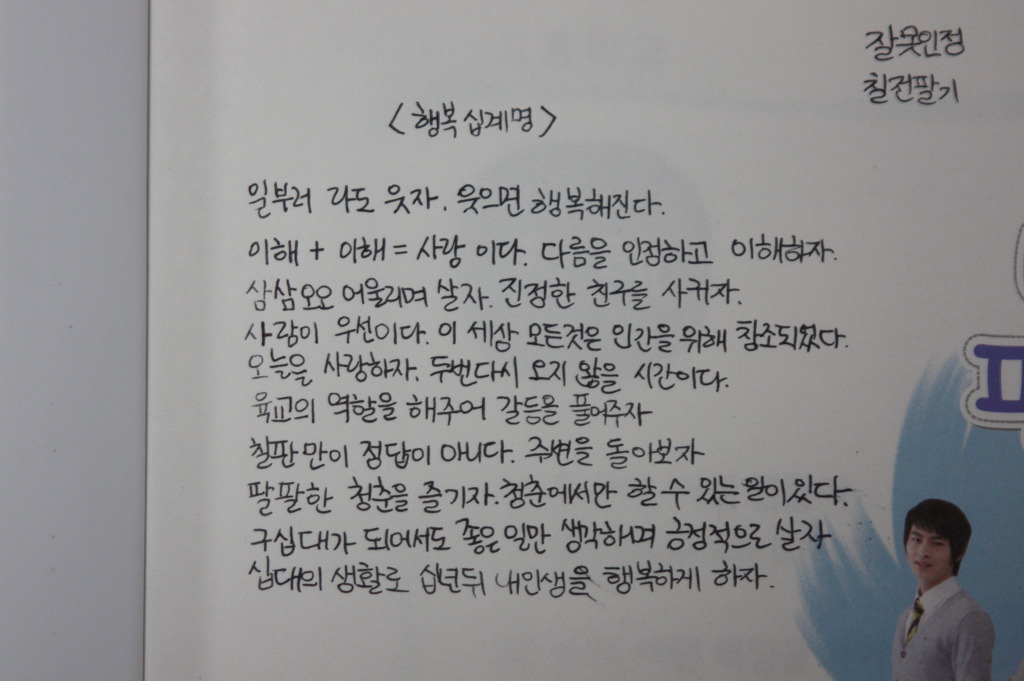 잘못인정
칠전팔기
<행복 십계명>
일부러 라도 웃자. 웃으면 행복해진다.
이해 + 이해 = 사랑 이다. 다름을 인정하고 이해하자.
삼삼오오 어울리며 살자. 진정한 친구를 사귀자.
사람이 우선이다. 이 세상 모든것은 인간을 위해 창조되었다.
오늘을 사랑하자. 두번다시 오지 않을 시간이다.
육교의 역할을 해주어 갈등을 풀어주자
칠판만이 정답이 아니다. 주변을 돌아보자
팔팔한 청춘을 즐기자. 청춘에서만 할 수 있는 일이 있다.
구십대가 되어서도 좋은 일만 생각하며 긍정적으로 살자
십대의 생활로 십년뒤 내인생을 행복하게 하자.